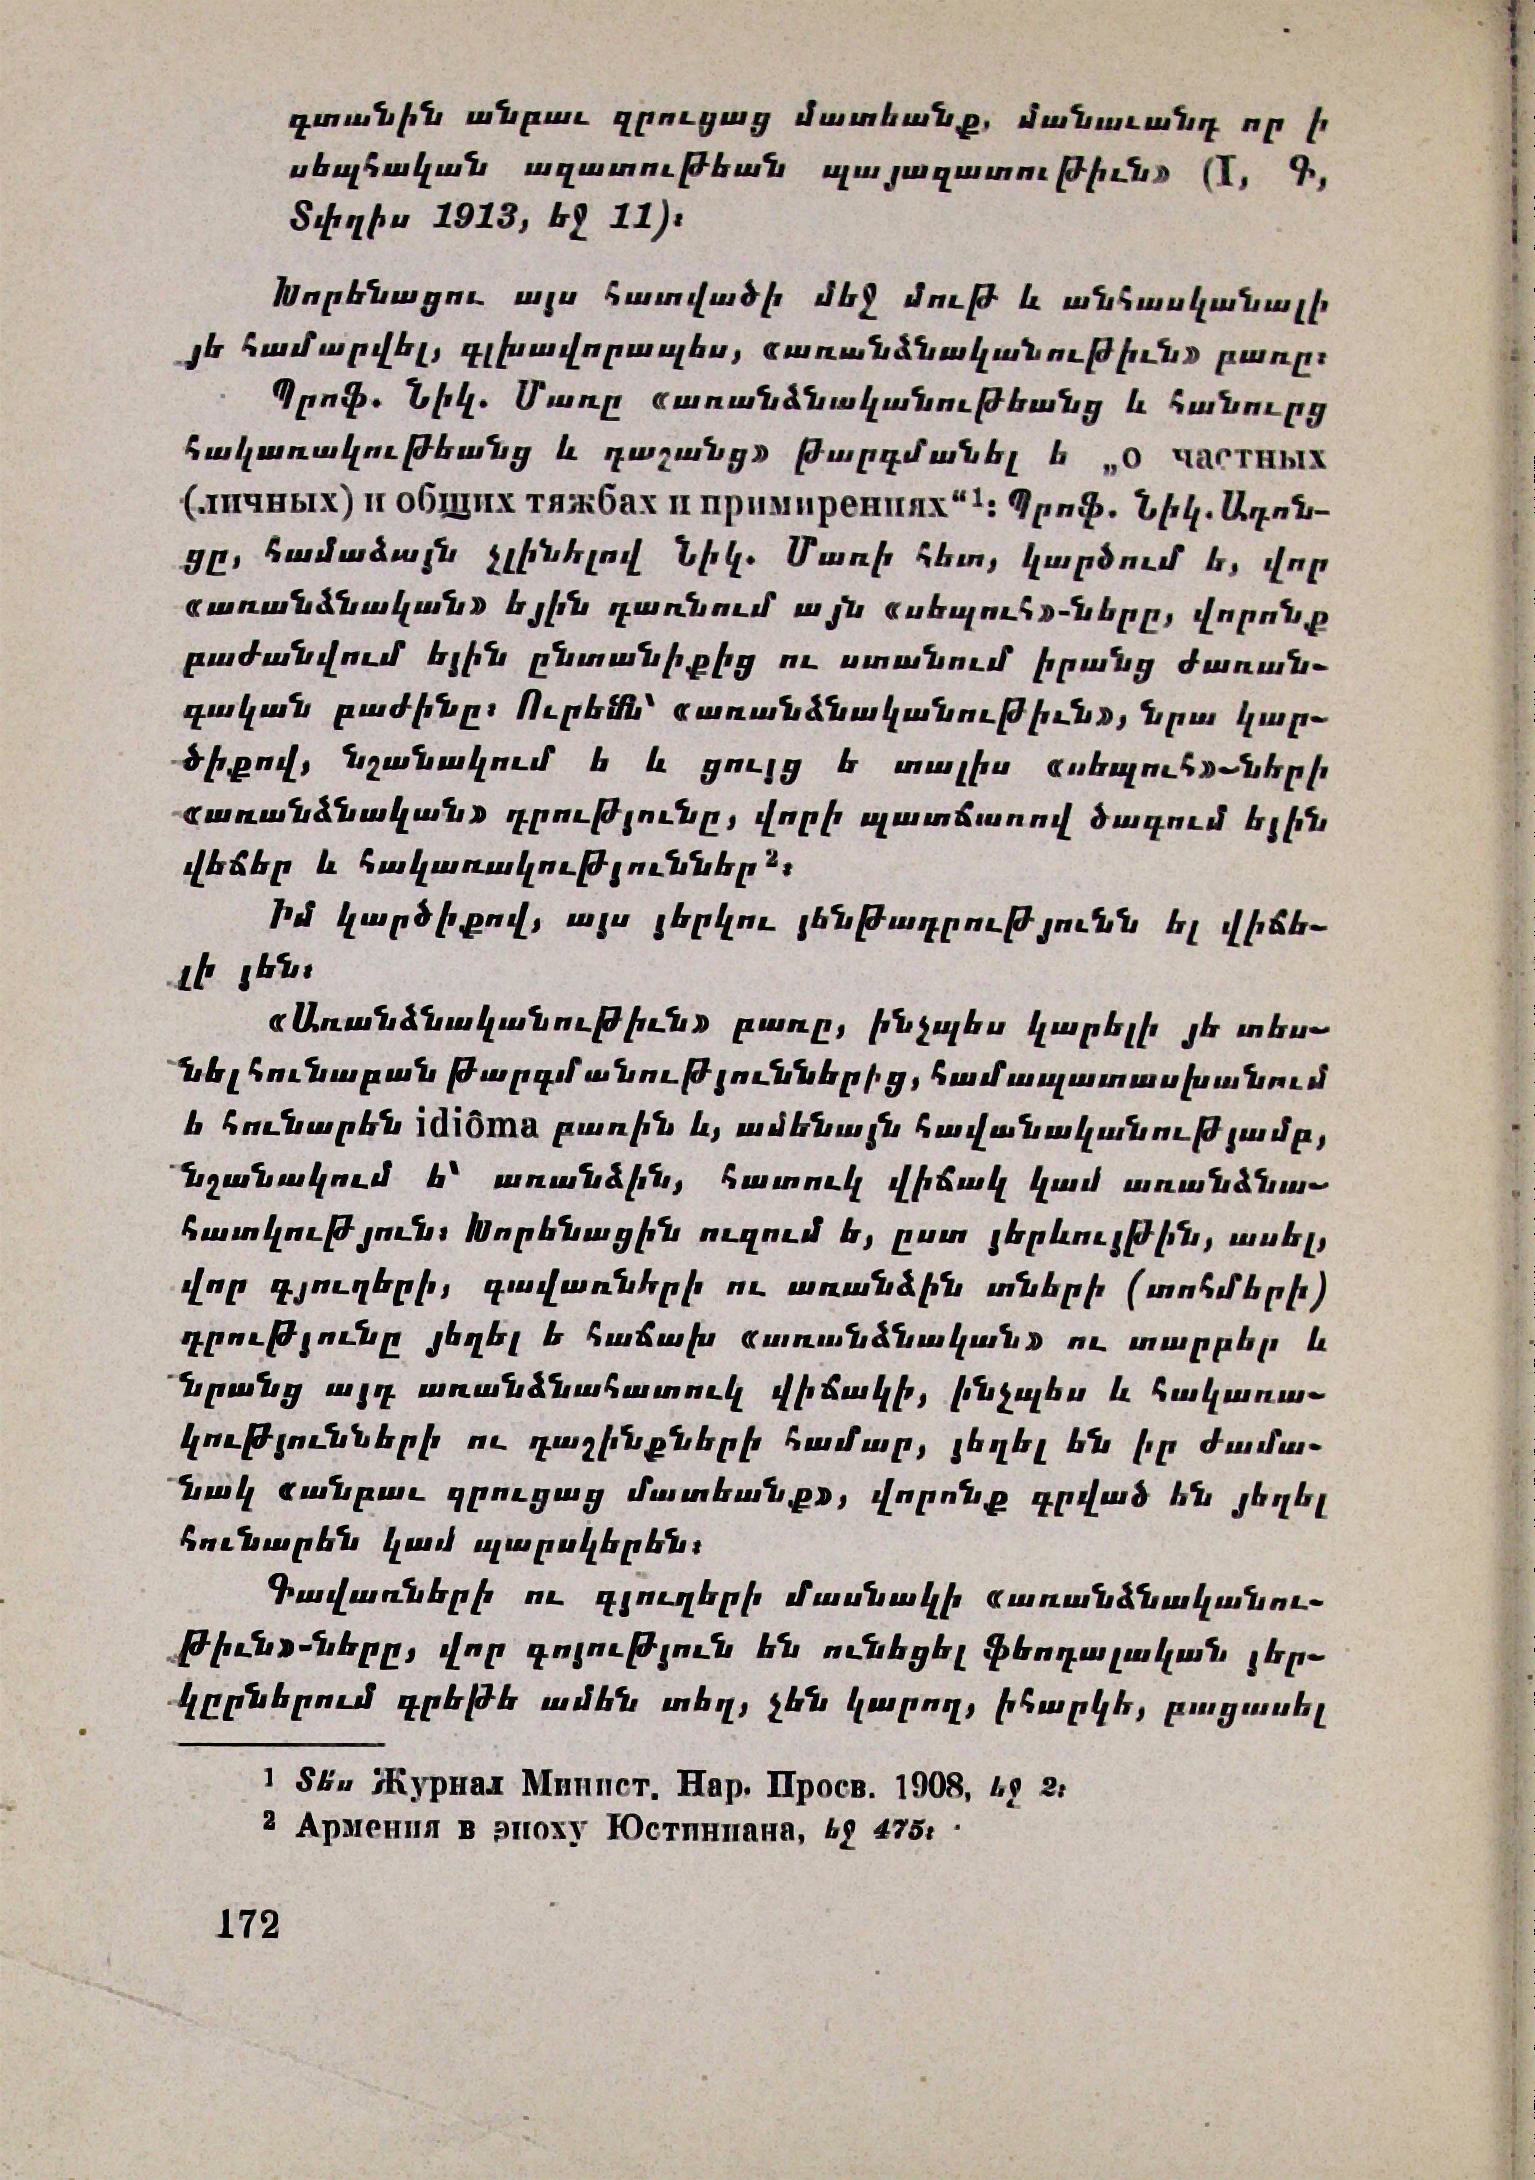 գտանին անբաւ զրուցաց մատեանք, մանաւանդ որ ի
սեպհական ազատութեան պայազատութիւն» (I, Գ,
Տփղիս 1913, եջ 11)։
Խորենացու այս հատվածի մեջ մութ և անհասկանալի
յե համարվել, գլխավորապես, «առանձնականութիւն» բառը։
Պրոֆ. Նիկ. Մառը «առանձնականութեանց և հանուրց
հակառակութեանց և դաշանց» թարգմանել ե „о частных
(личных) и общих тяжбах и примирениях“¹: Պրոֆ. Նիկ. Ադոն-
ցը, համաձայն չլինելով Նիկ. Մառի հետ, կարծում ե, վոր
«առանձնական» եյին դառնում այն «սեպուհ»-ները, վորոնք
բաժանվում եյին ընտանիքից ու ստանում իրանց ժառան-
գական բաժինը։ Ուրեմն՝ «առանձնականութիւն», նրա կար-
ծիքով, նշանակում ե և ցույց ե տալիս «սեպուհ»-ների
«առանձնական» դրությունը, վորի պատճառով ծագում եյին
վեճեր և հակառակություններ²։
Իմ կարծիքով, այս յերկու յենթադրությունն ել վիճե-
լի յեն։
«Առանձնականութիւն» բառը, ինչպես կարելի յե տես-
նել հունաբան թարգմանություններից, համապատասխանում
ե հունարեն idiôma բառին և, ամենայն հավանականությամբ,
նշանակում ե՝ առանձին, հատուկ վիճակ կամ առանձնա-
հատկություն։ Խորենացին ուզում ե, ըստ յերևույթին, ասել,
վոր գյուղերի, գավառների ու առանձին տների (տոհմերի)
դրությունը յեղել ե հաճախ «առանձնական» ու տարբեր և
նրանց այդ առանձնահատուկ վիճակի, ինչպես և հակառա-
կությունների ու դաշինքների համար, յեղել են իր ժամա-
նակ «անբաւ զրուցաց մատեանք», վորոնք գրված են յեղել
հունարեն կամ պարսկերեն։
Գավառների ու գյուղերի մասնակի «առանձնականու-
թիւն»-ները, վոր գոյություն են ունեցել ֆեոդալական յեր-
կըրներում գրեթե ամեն տեղ, չեն կարող, իհարկե, բացասել
¹ Տե՛ս Журнал Минист. Нар. Просв. 1908, եջ 2։
² Армения в эпоху Юстиниана, եջ 475։
172